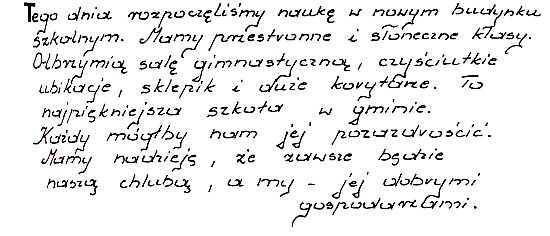 Tego dnia rozpoczęliśmy naukę w nowym budynku
szkolnym. Mamy przestronne i słoneczne klasy.
Olbrzymią salę gimnastyczną, czyściutkie
ubikacje, sklepik i duże korytarze. To
najpiękniejsza szkoła w gminie.
Każdy mógłby nam jej pozazdrościć.
Mamy nadzieję, że zawsze będzie
naszą chlubą, a my - jej dobrymi
gospodarzami.